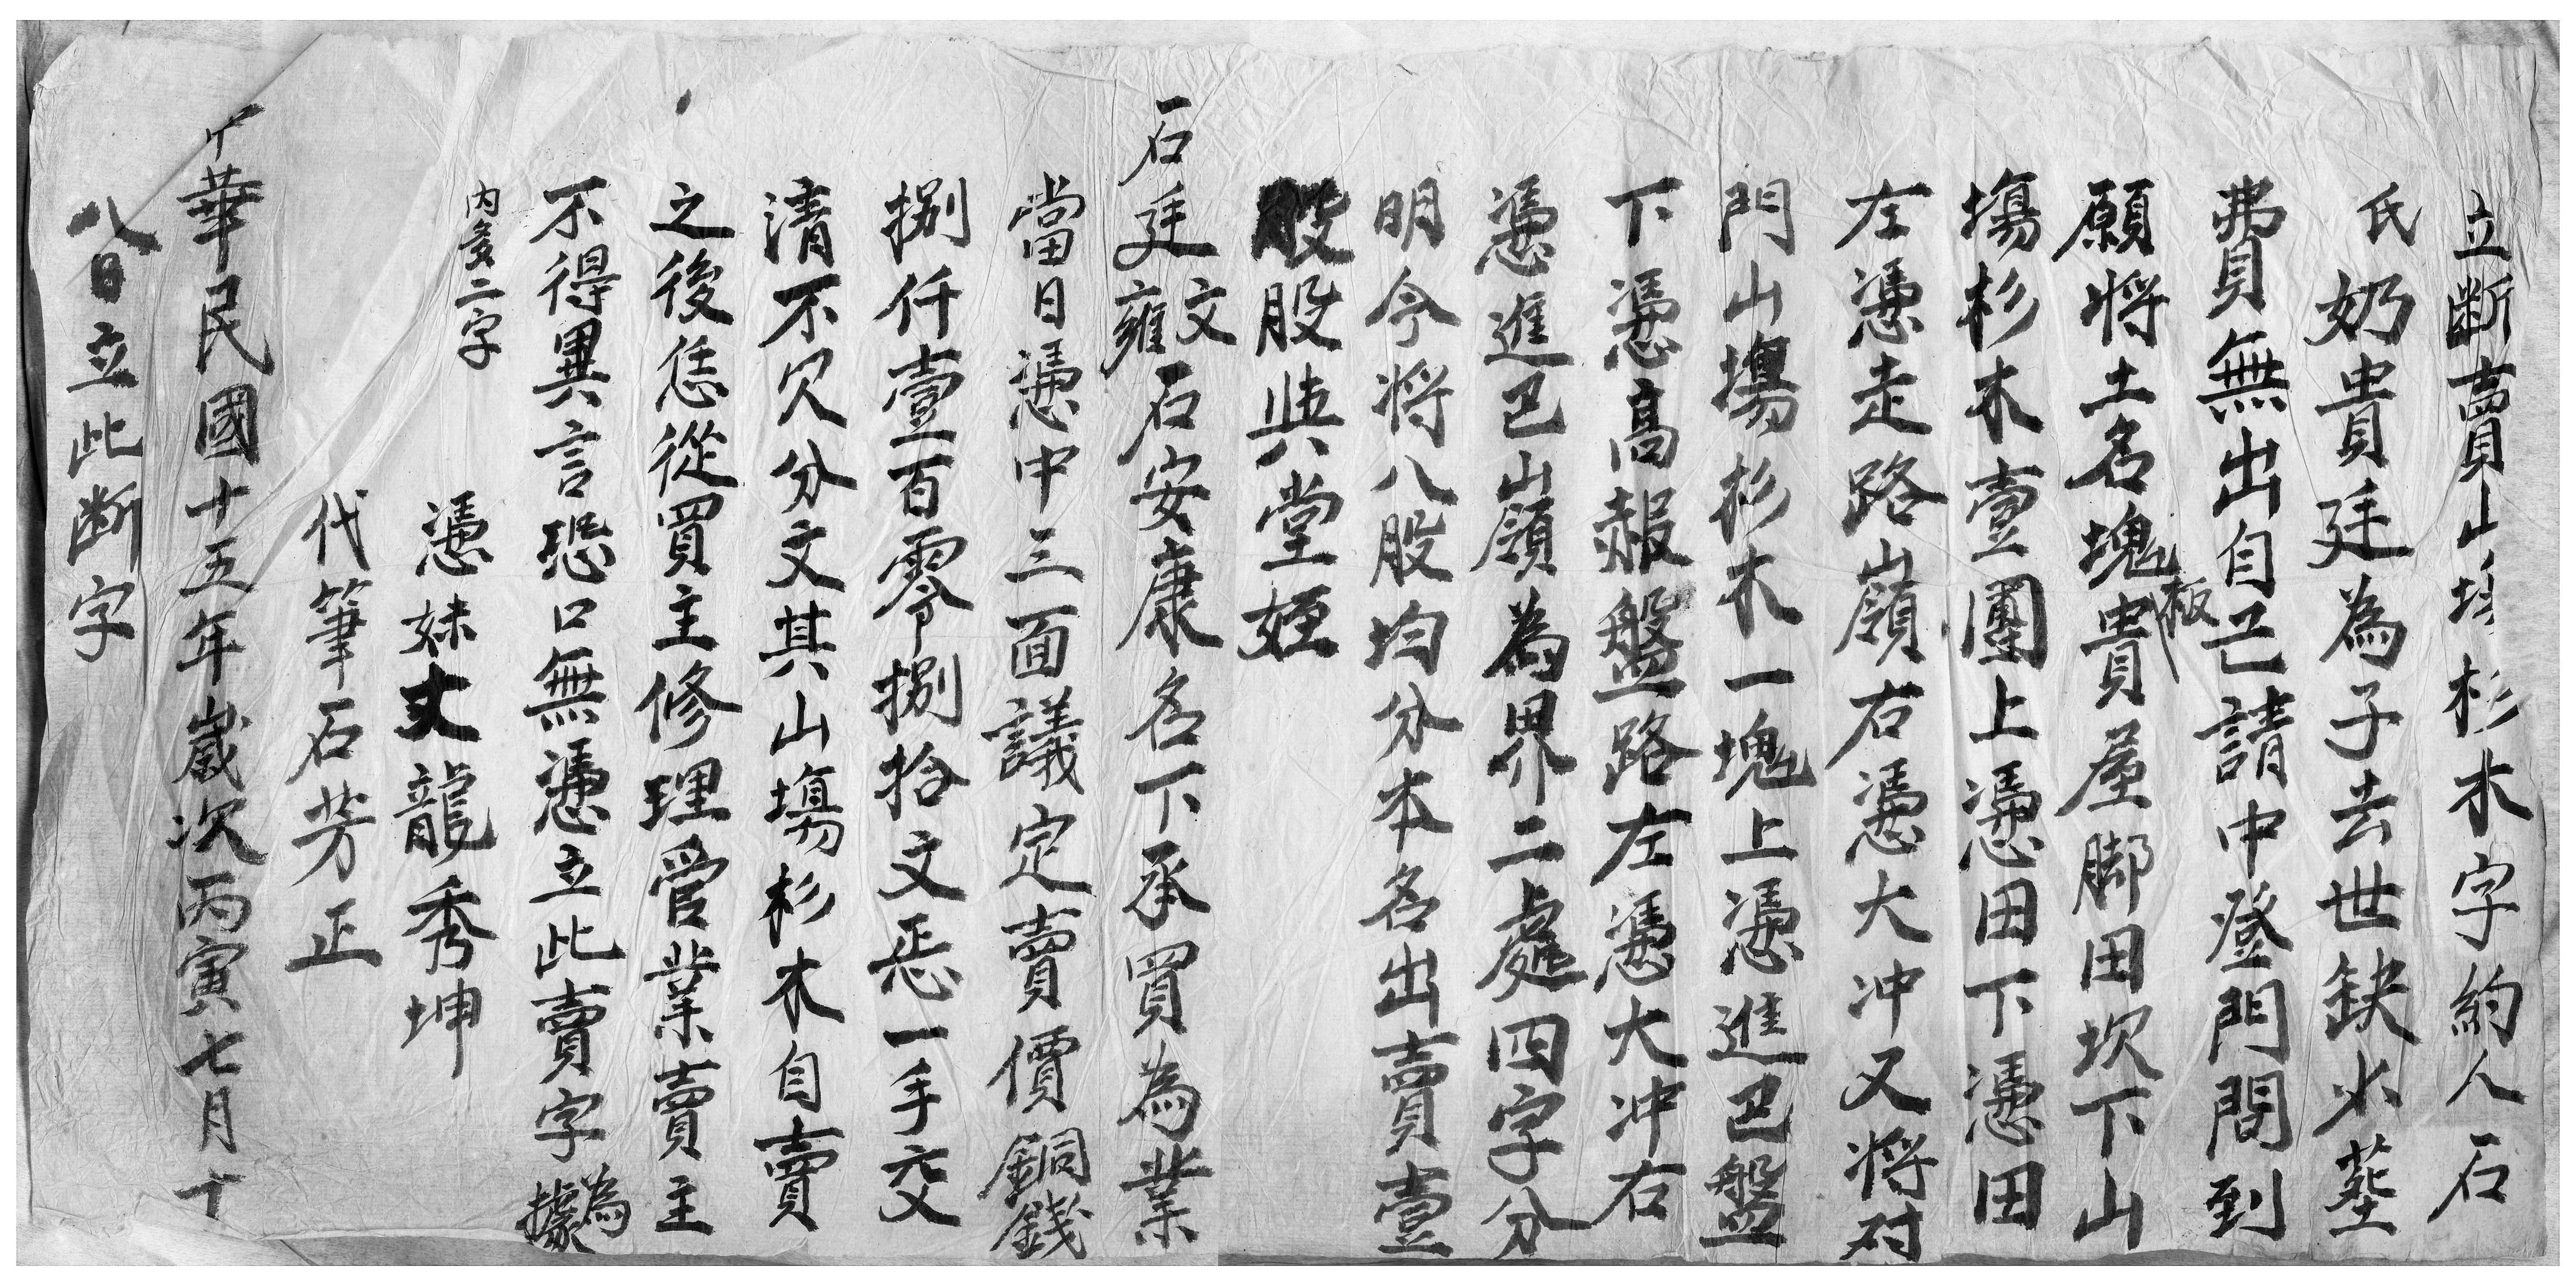 立断賣山塲杉木字約人石
氏奶貴廷為子去世缺少塟
費無出自己請中登門問到
願将土名塊板貴屋脚田坎下山
塲杉木壹團上慿田下慿田
左慿走路嶺右慿大冲又将对
門山塲杉木一塊上慿進巴盤
下慿高赧盤路左慿大冲右
慿進巴嶺為界二處四字分
明今将八股均分本名出賣壹
股股與堂姪
石廷文雍石安康名下承買為業
當日慿中三面議定賣價銅錢
捌仟壹百零捌拾文恁一手交
清不欠分文其山塲杉木自賣
之後恁從買主修理管業賣主
不得異言恐口無慿立此賣字為據
内多二字
慿妹丈龍秀坤
代筆石芳正
中華民國十五年歲次丙寅七月十
八日立此断字